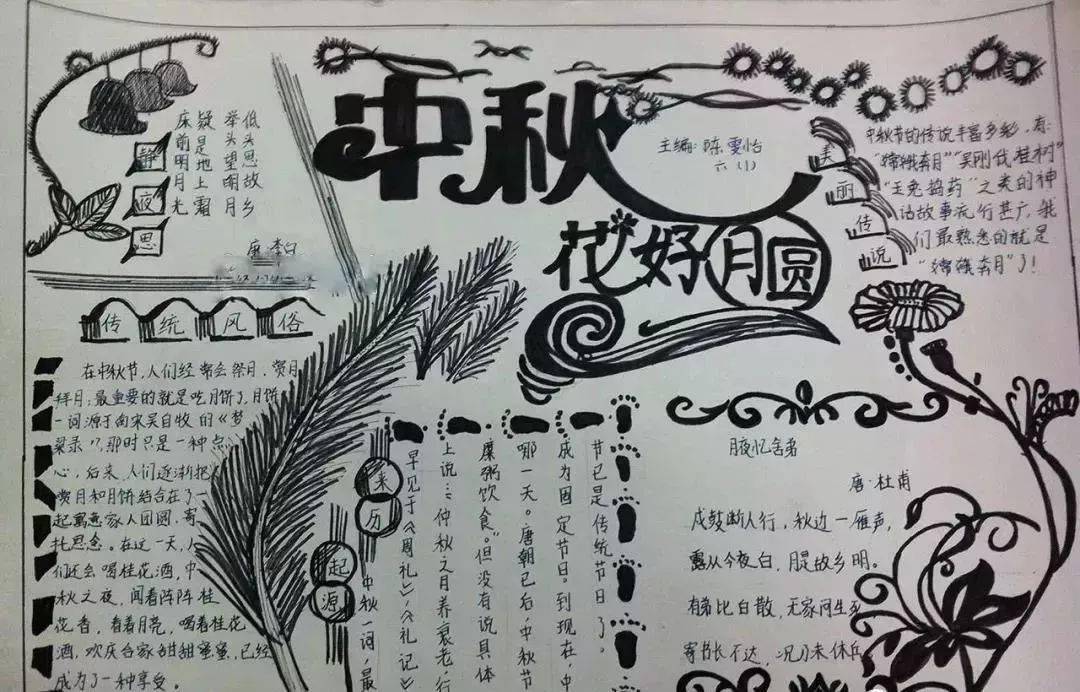 中秋
花好月圆
主编:陈雯怡
六(1)
静夜思
床前明月光
疑是地上霜
举头望明月
低头思故乡
唐·李白
美丽传说
中秋节的传说丰富多彩,有:
“嫦娥奔月”“吴刚伐桂树”
“玉兔捣药”之类的神
话故事流行甚广,我
们最熟悉的就是
“嫦娥奔月”了!
传统风俗
在中秋节,人们经常会祭月,赏月
拜月;最重要的就是吃月饼了,月饼
一词源于南宋吴自牧的《梦
梁录》,那时只是一种点
心,后来人们逐渐把
赏月和月饼结合在了一
起寓意家人团圆,寄
托思念。在这一天,人
们还会喝桂花酒,中
秋之夜,闻着阵阵桂
花香,看着月亮,喝着桂花
酒,欢庆合家甜甜蜜蜜,已经
成为了一种享受。
起源
来历
中秋一词,最
早见于《周礼》,《礼记》
上说:“仲秋之月养衰老,行
糜粥饮食。”但没有说具体
哪一天。唐朝已后,中秋节
成为固定节日。到现在,中
节已是传统节日了。
月夜忆舍弟
唐·杜甫
戍鼓断人行,秋边一雁声,
露从今夜白,月是故乡明。
有弟比白散,无家问生死
寄书长不达,况乃未休兵